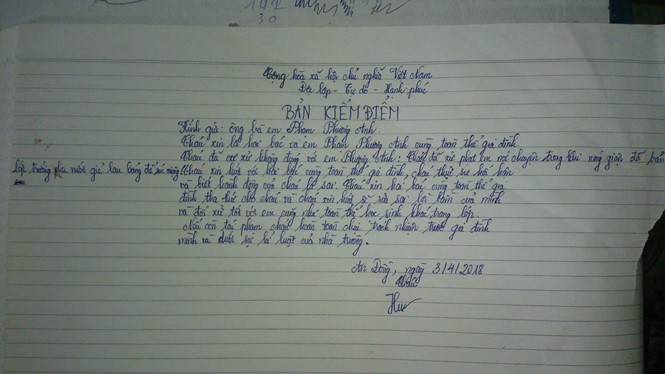 Cộng hòa xã hội chủ nghĩa Việt Nam
Độc lập - Tự do - Hạnh phúc
BẢN KIỂM ĐIỂM
Kính gửi: ông bà em Phạm Phương Anh.
Cháu xin lỗi hai bác và em Phạm Phương Anh cùng toàn thể gia đình.
Cháu đã cư xử không đúng với em Phương Anh: Cháu đã xử phạt em nói chuyện trong khi nóng giận đã bắt
lớp trưởng pha nước giẻ lau bảng để súc miệng. Cháu xin lỗi với hai bác cùng toàn thể gia đình, cháu thực sự hối hận
và biết hành động của cháu là sai. Cháu xin hai bác cùng toàn thể gia
đình tha thứ cho cháu và cháu xin hứa sẽ sửa sai lỗi lầm của mình
và đối xử tốt với em cũng như toàn thể học sinh khác trong lớp.
Nếu còn tái phạm cháu hoàn toàn chịu trách nhiệm trước gia đình
mình và dưới sự kỉ luật của nhà trường.
An Đồng, ngày 3/4/2018